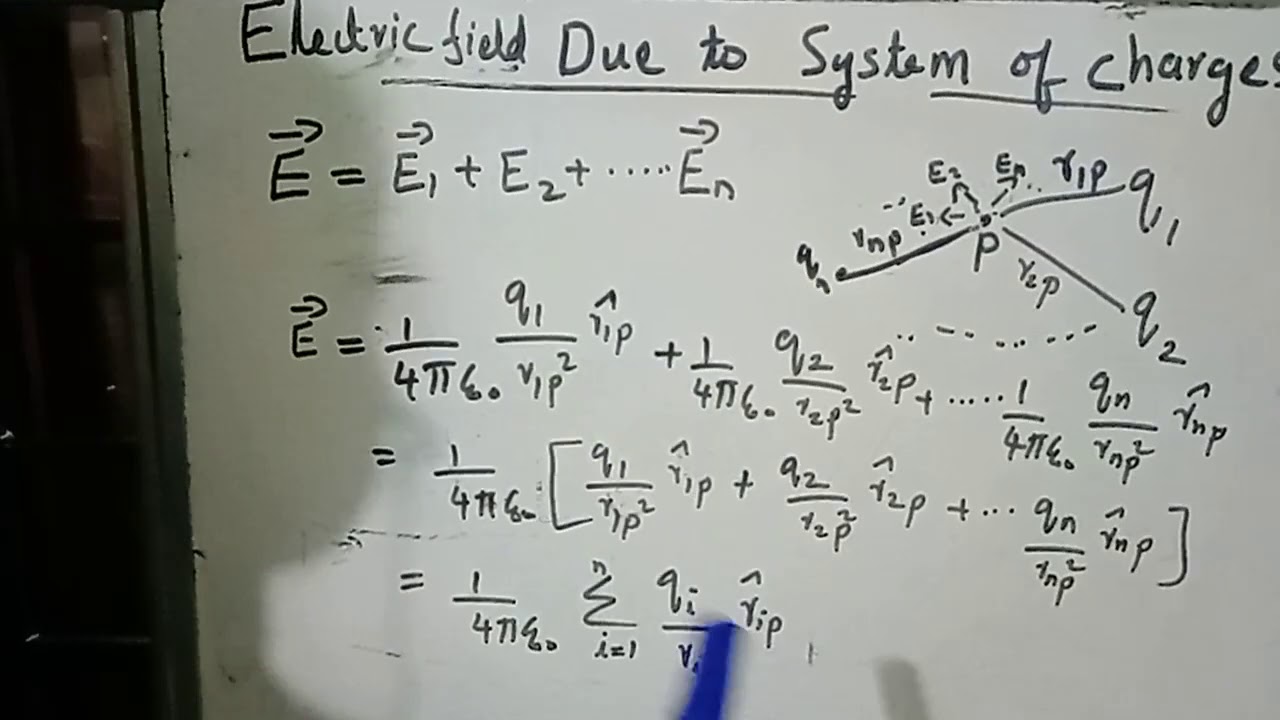 Electric field Due to System of charges
E⃗ = E⃗₁ + E₂ + ..... E⃗ₙ
E₂ Eₙ r₁ₚ q₁
E₁ rₙₚ P
qₙ r₂ₚ q₂
E⃗ = 1/4πε₀ q₁/r₁ₚ² r̂₁ₚ + 1/4πε₀ q₂/r₂ₚ² r̂₂ₚ + ..... 1/4πε₀ qₙ/rₙₚ² r̂ₙₚ
= 1/4πε₀ [ q₁/r₁ₚ² r̂₁ₚ + q₂/r₂ₚ² r̂₂ₚ + ... qₙ/rₙₚ² r̂ₙₚ ]
= 1/4πε₀ Σⁿᵢ₌₁ qᵢ/r r̂ᵢₚ